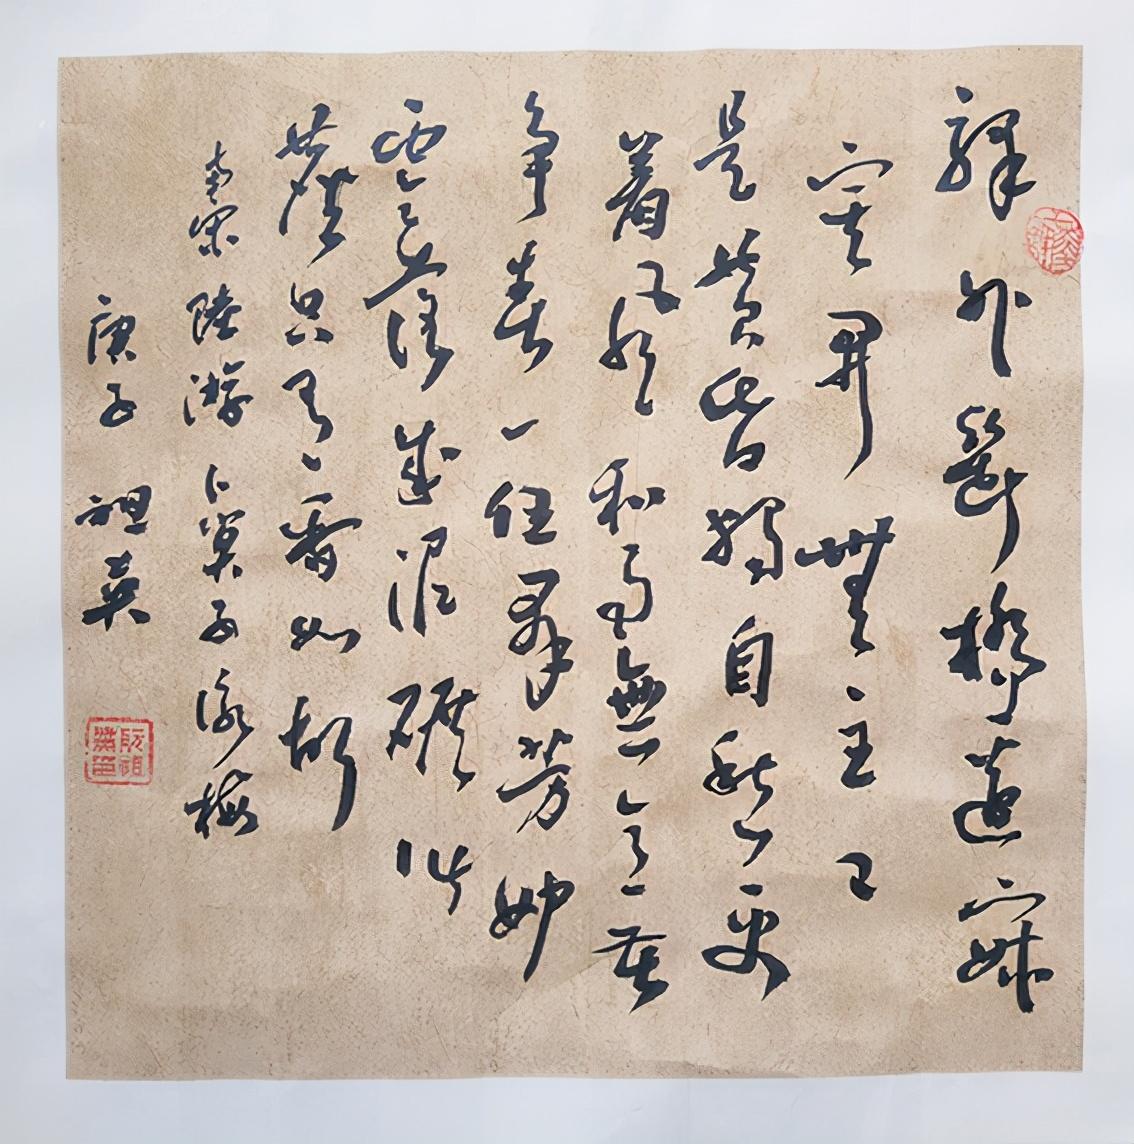 驛外斷橋邊寂
寞開無主已
是黃昏獨自愁更
著風和雨無意苦
爭春一任羣芳妒
零落成泥碾作
塵只有香如故
南宋陸游卜算子詠梅
庚子祖英
阮祖英印